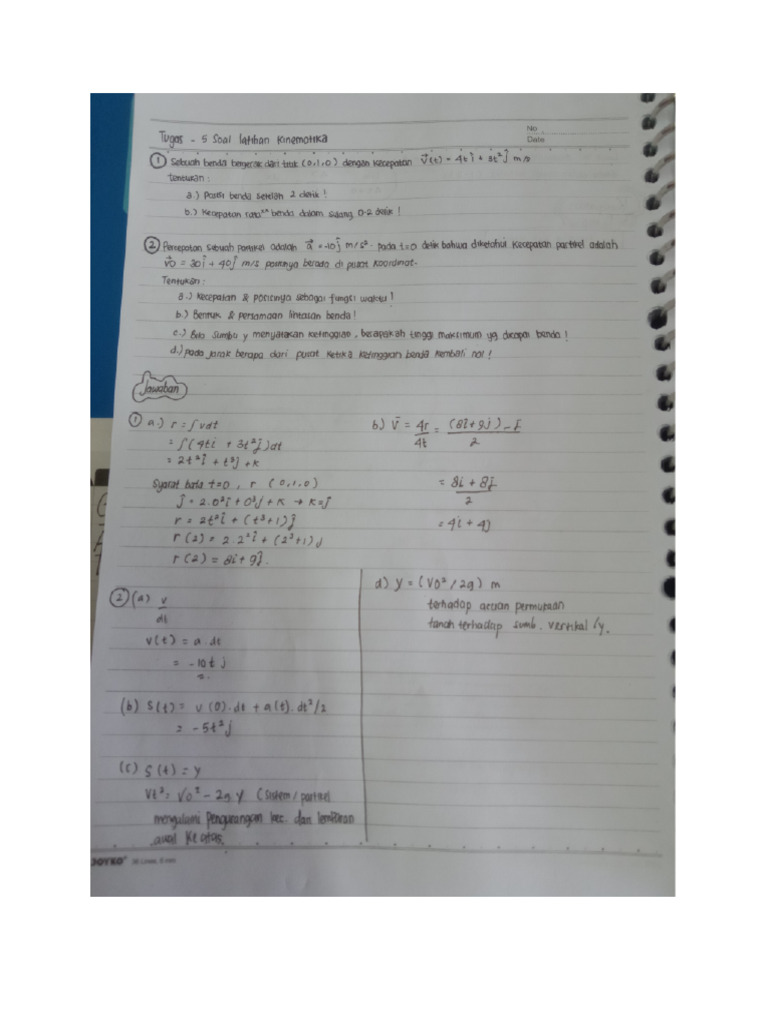 No
Date
Tugas - 5 Soal latihan Kinematika
① Sebuah benda bergerak dari titik (0,1,0) dengan kecepatan v⃗(t) = 4t î + 3t² ĵ m/s
Tentukan :
a.) Posisi benda setelah 2 detik !
b.) Kecepatan rata²² benda dalam selang 0-2 detik !
② Percepatan sebuah partikel adalah a⃗ = -10ĵ m/s². Pada t=0 detik bahwa diketahui kecepatan partikel adalah
v⃗0 = 30î + 40ĵ m/s posisinya berada di pusat koordinat.
Tentukan :
a.) Kecepatan & posisinya sebagai fungsi waktu !
b.) Bentuk & persamaan lintasan benda !
c.) Bila sumbu y menyatakan ketinggian, berapakah tinggi maksimum yg dicapai benda !
d.) pada jarak berapa dari pusat ketika ketinggian benda kembali nol !
Jawaban
① a.) r = ∫ v dt
= ∫ (4ti + 3t²ĵ) dt
= 2t²î + t³ĵ + K
Syarat batas t=0, r (0,1,0)
ĵ = 2.0²î + 0³ĵ + K → K=ĵ
r = 2t²î + (t³+1)ĵ
r (2) = 2.2²î + (2³+1)j
r (2) = 8î + 9ĵ.
b.) v̄ = 4r/4t = (8î + 9j) - j / 2
= 8i + 8j / 2
= 4i + 4j
② (a) v/dt
v(t) = a . dt
= -10t j
(b) S(t) = v (0) . dt + a(t) . dt²/2
= -5t²j
(c) S (t) = y
Vt² = Vo² - 2g.y (sistem / partikel
mengalami pengurangan kec. dan lemparan
awal ke atas.
d) y = (Vo² / 2g) m
terhadap acuan permukaan
tanah terhadap sumb. vertikal /y.
JOYKO